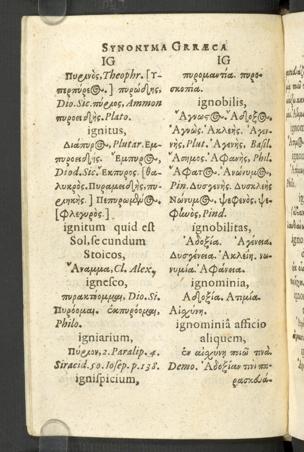 SYNONYMA GRRÆCA
IG
Πυρινὸς, Theophr. [Υ-
περπύρε@.] πυρώδης,
Dio. Sic. πύριος, Ammon
πυροειδὴς. Plato.
ignitus,
Διάπυρ@, Plutar. Εμ-
πυροειδὴς. Ἔμπυρ@,
Diod. Sic. Ἐκπυρος. [θα-
λυκρὸς. Πυραμειδὴς, πυ-
[Φλεγυρὸς.]
ignitum quid est
Sol, secundum
Stoicos,
Ἄναμμα, Cl. Alex.,
ignesco,
πυρακτέομαι, Dio. Si.
Πυρόομαι, ἐκπυρόομαι,
Philo.
igniarium,
Πύρειον, 2. Paralip. 4.
Siracid. 50. Iosep. p. 138.
ignispicium,
IG
πυρομαντία. πυρο-
σκοπία.
ignobilis,
Ἄγνωσ@. Ἄδοξ@.
Ἀγνὼς. Ἀκλεὴς. Ἀγε-
νὴς, Plut. Ἀγενὴς, Basil.
Ἄσημος. Ἀφανὴς, Phil.
Ἄφατ@. Ἀνώνυμ@,
Pin. Δυσγενὴς. Δυσκλεὴς
Νώνυμ@. ψεφενὸς, ψε-
φινὸς, Pind.
ignobilitas,
Ἀδοξία. Ἀγένεια.
Δυσγένεια. Ἀκλείη. νω-
νυμία. Ἀφάνεια.
ignominia,
Ἀδοξία. Ατιμία.
Αἰσχύνη.
ignominiâ afficio
aliquem,
ἐν αἰσχύνῃ ποιῶ τινά.
Demo. Ἀδοξίαν τινὶ πα-
ρασκευά-